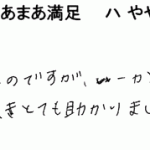 あまあ満足 ハ やや
のですが、一か
きとても助かりまし